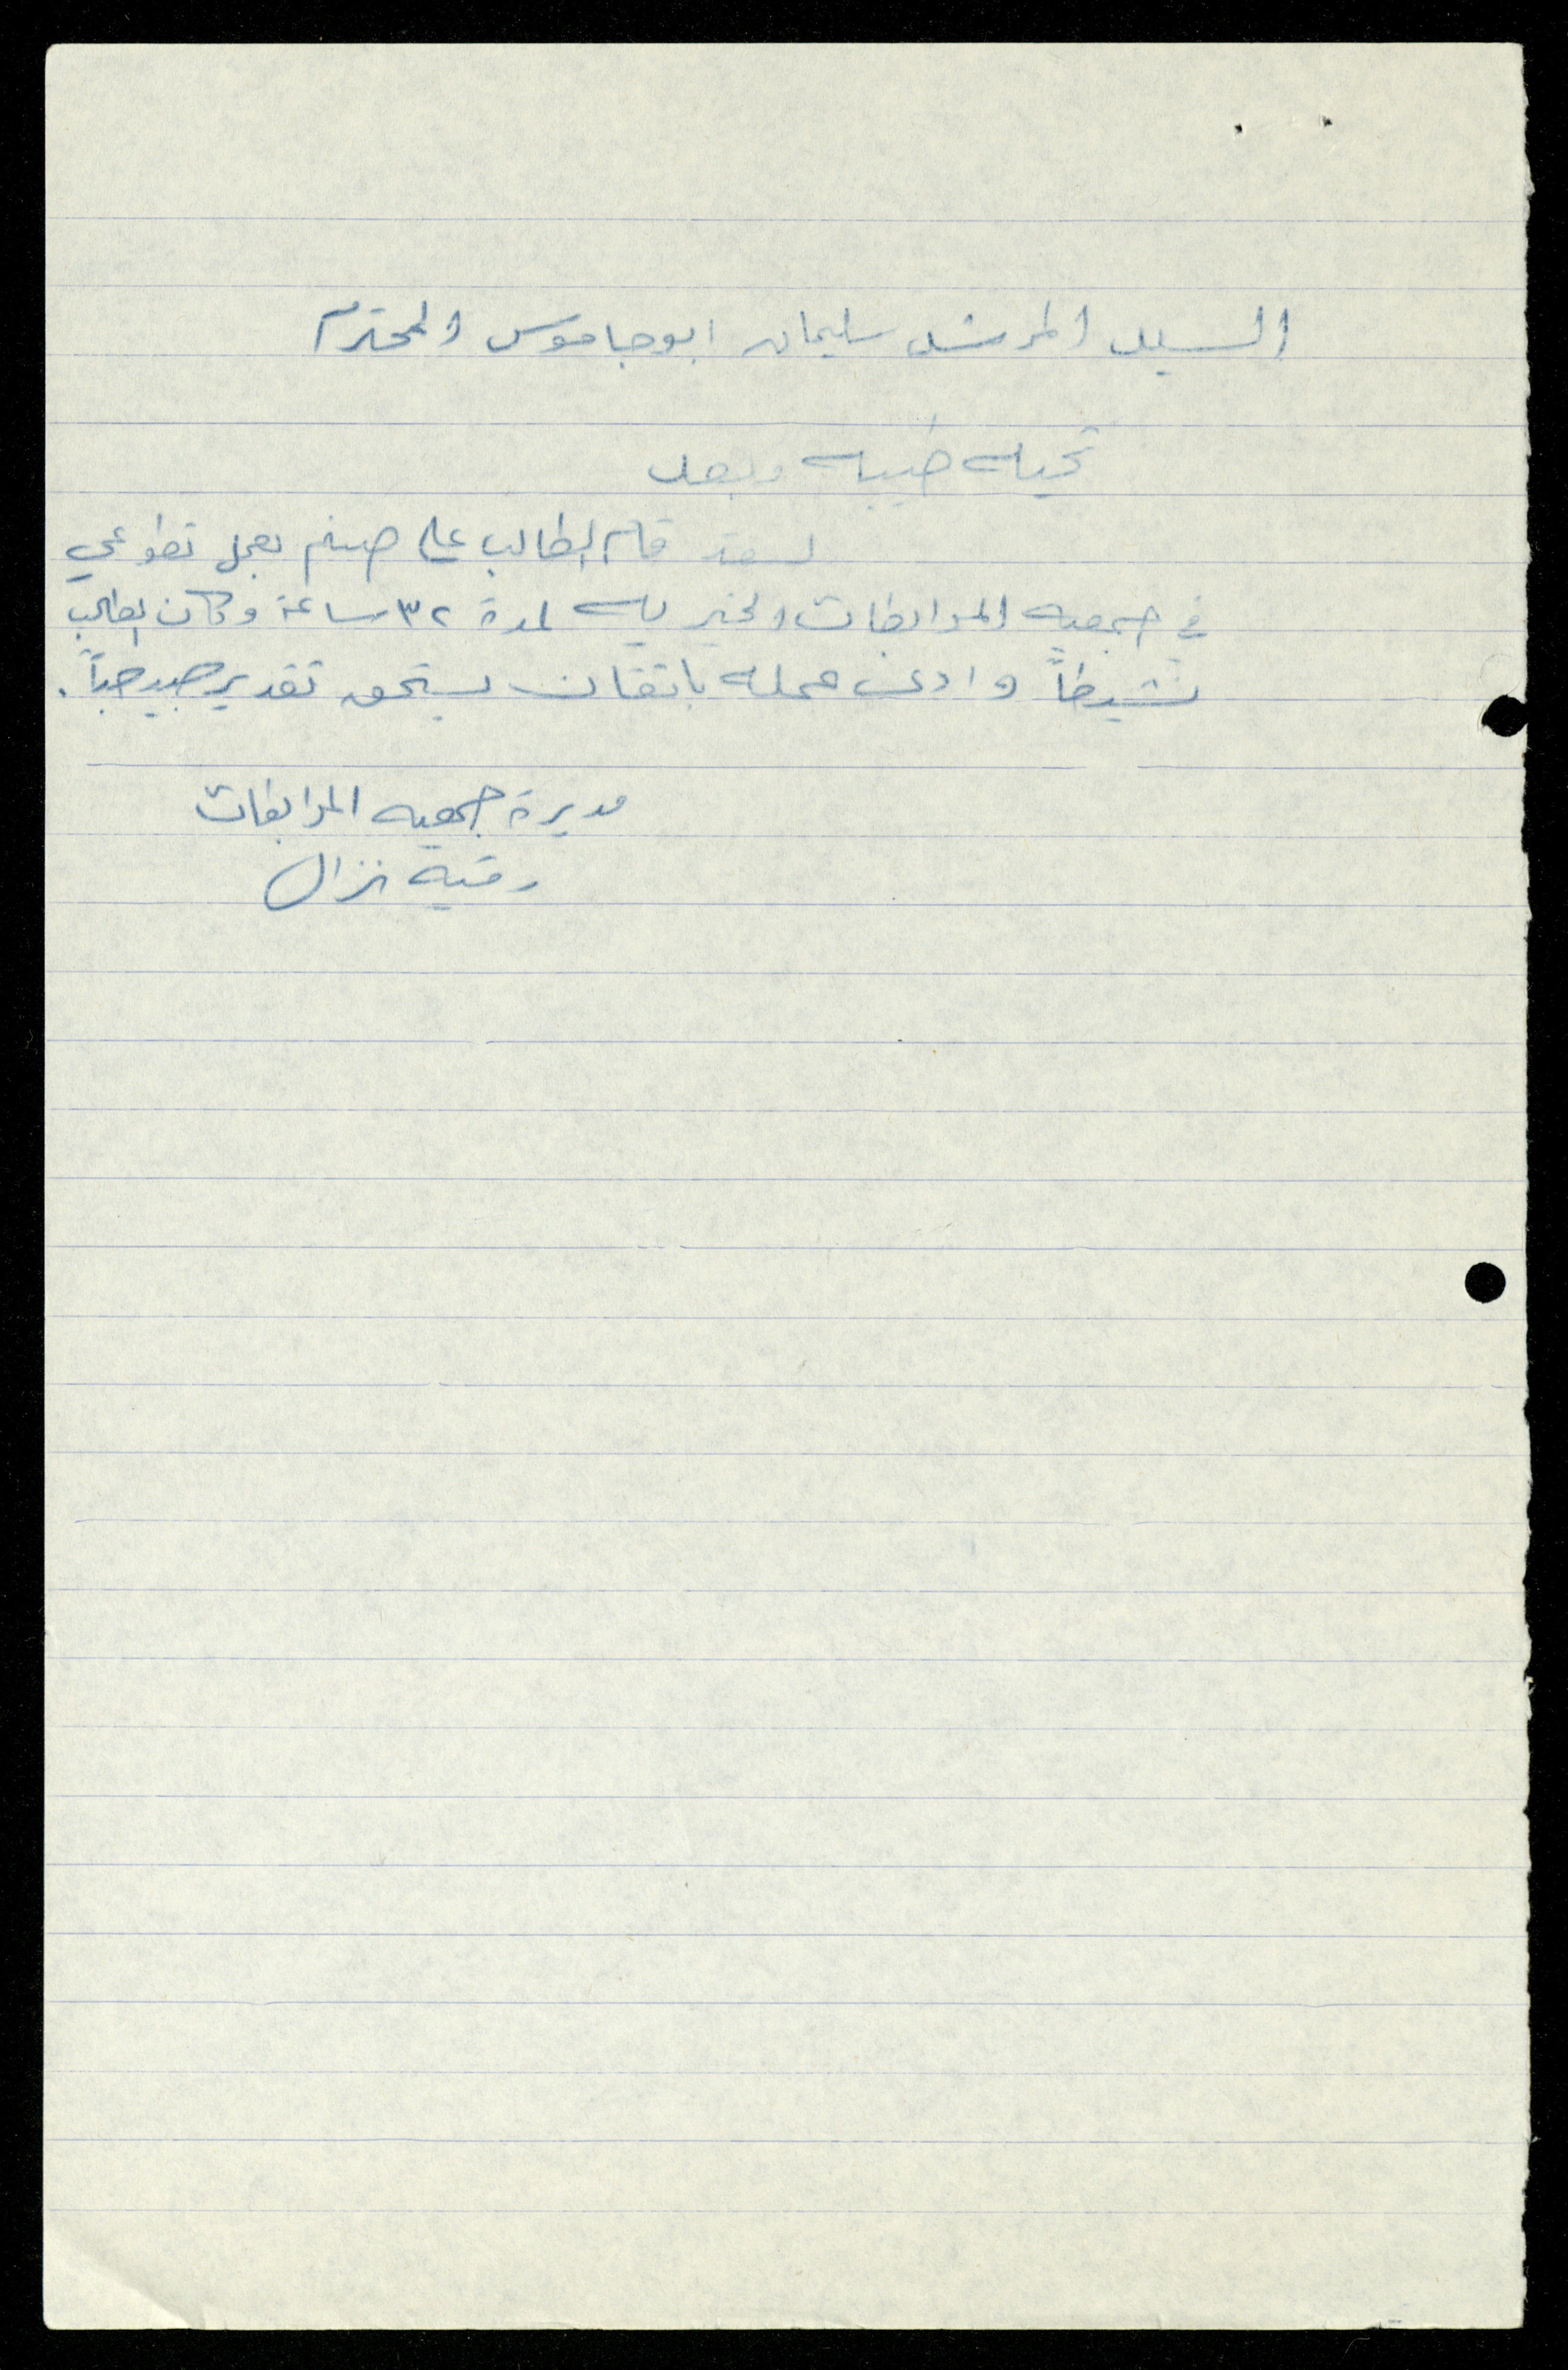 السيد المرشد سليمان ابو جاموس المحترم
تحيه طيبه وبعد
لقد قام الطالب علي صيام بعمل تطوعي
في جمعيه المرابطات الخيريه لمدة ٣٢ ساعة وكان الطالب
نشيطاً وادى عمله باتقان يستحق تقدير جيد جداً.
مديرة جمعيه المرابطات
رقيه نزال